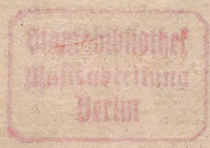 Staatsbibliothek
Musikabteilung
Berlin